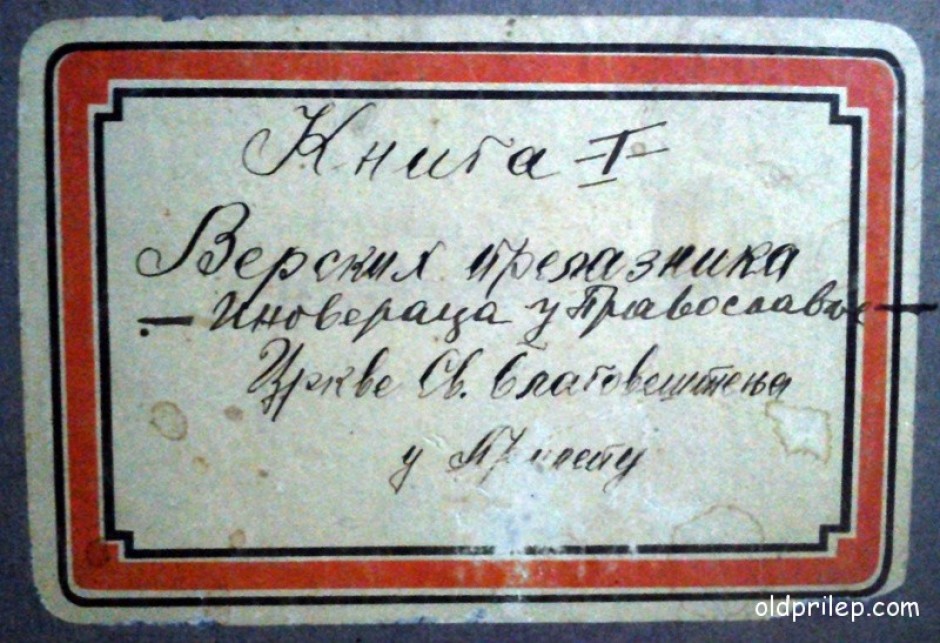 Книга I
Верских прелазника
— Иновераца у Православље —
Цркве Св. Благовештења
у Прилепу
oldprilep.com